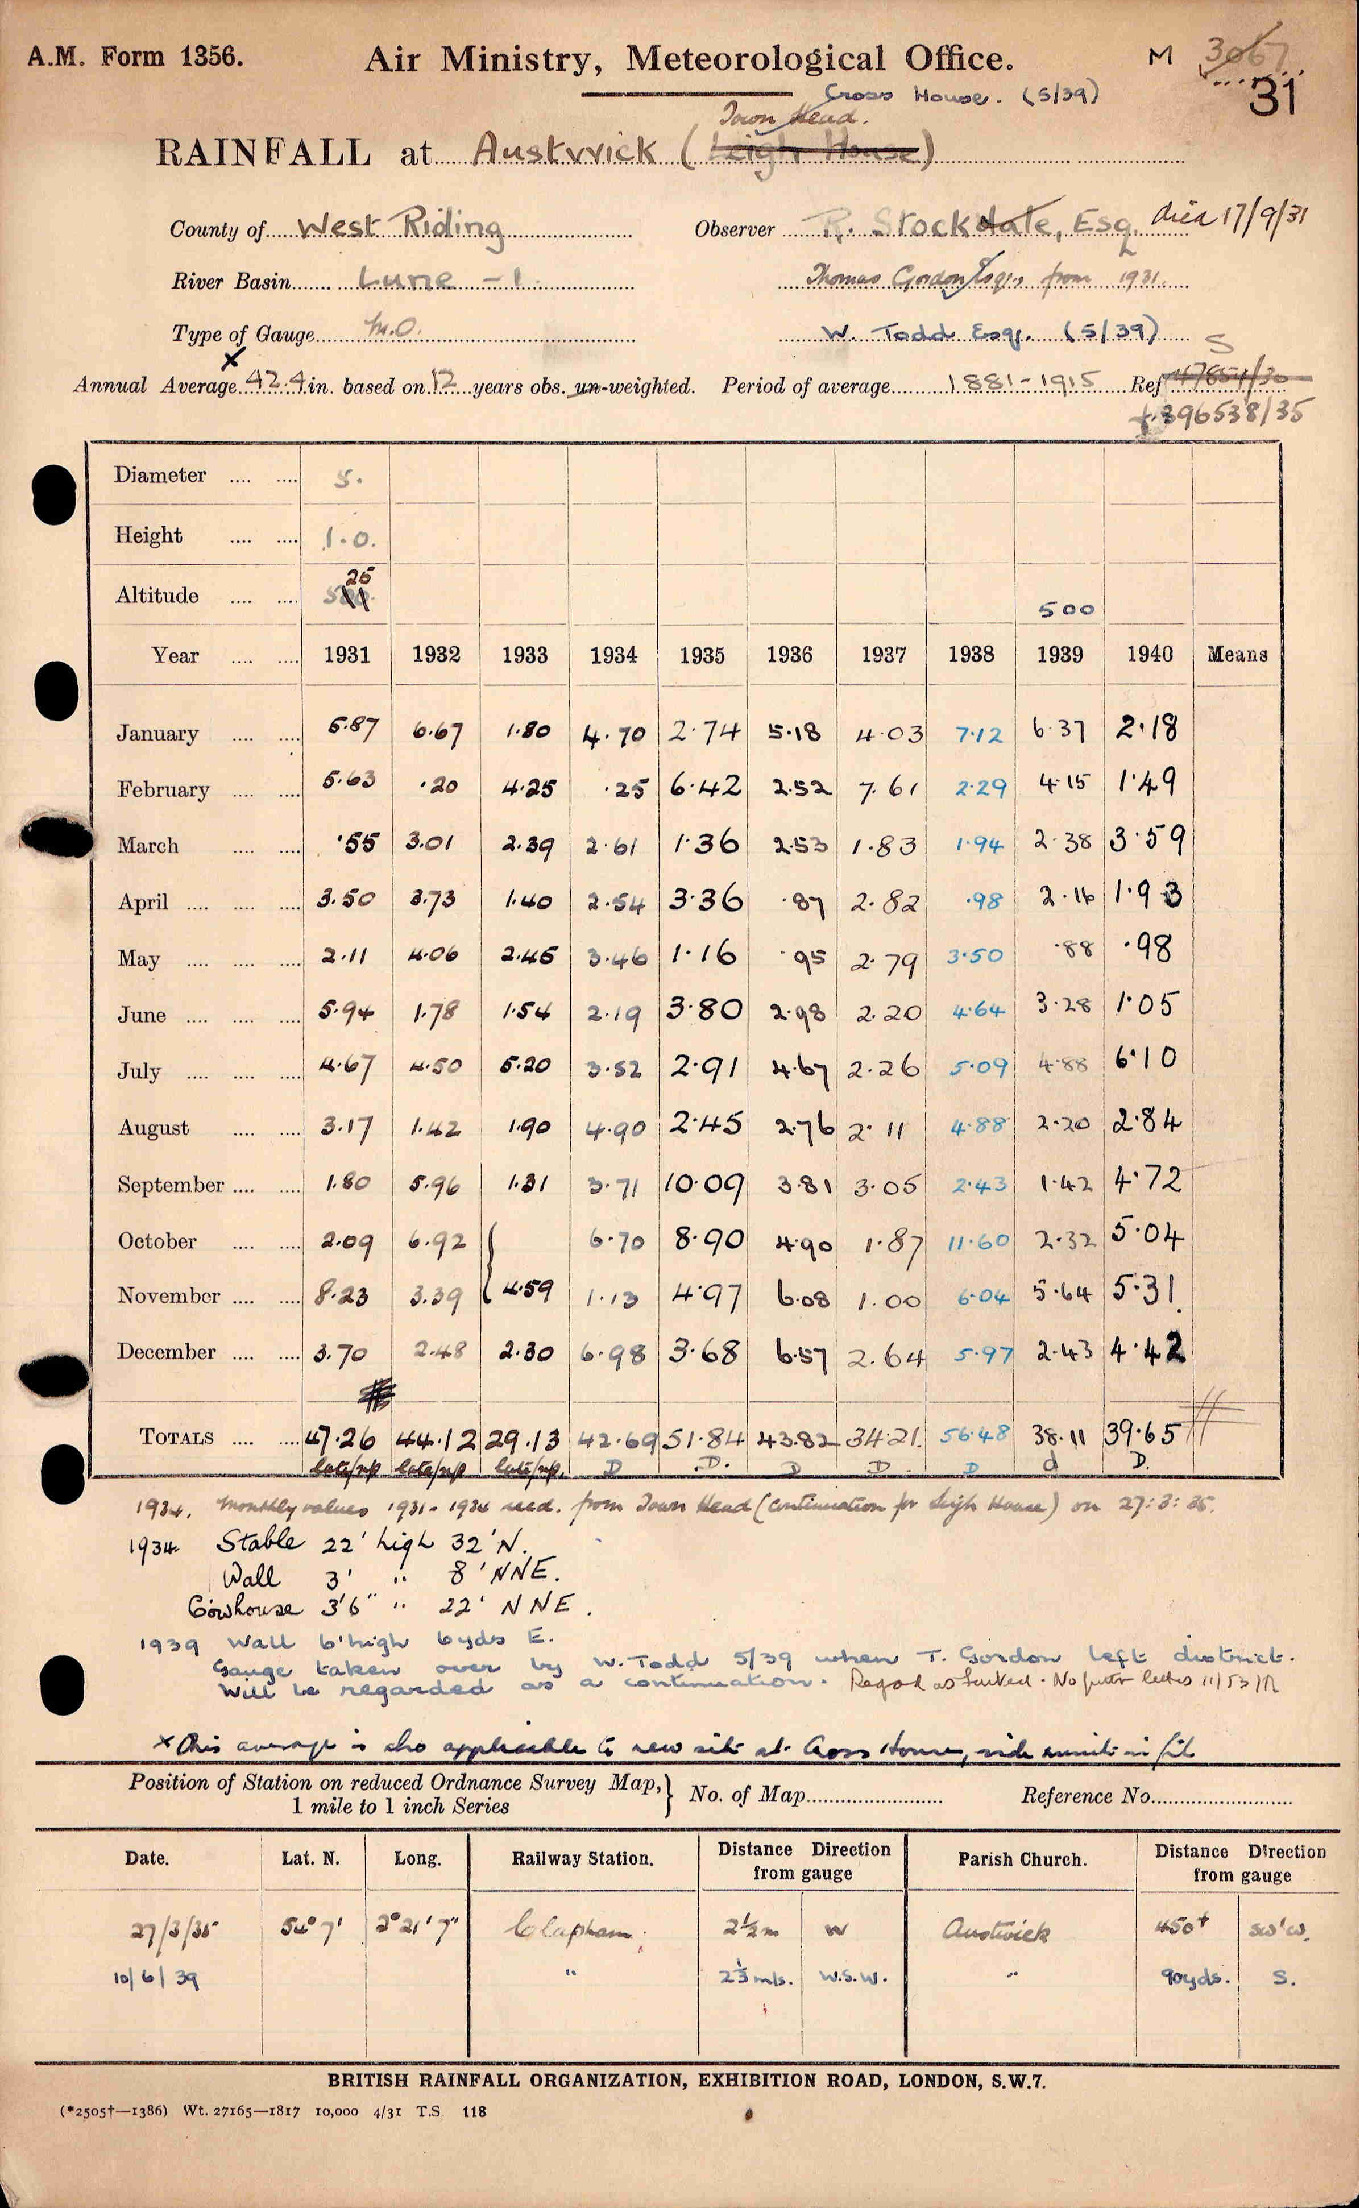 A.M. Form 1356. Air Ministry, Meteorological Office. M 3067
31
Cross House. (5/39)
Town Head.
RAINFALL at Austwick (Leigh House)
County of West Riding Observer R. Stockdale, Esq. died 17/9/31
River Basin Lune - 1 Thomas Gordon Esq. from 1931.
Type of Gauge M.O. W. Todd Esq. (5/39)
S
Annual Average x 42.4 in. based on 12 years obs. un-weighted. Period of average 1881-1915 Ref 47854/30
396538/35
Diameter .... .... 5.
Height .... .... 1.0.
Altitude .... .... 25 500
Year .... .... 1931 1932 1933 1934 1935 1936 1937 1938 1939 1940 Means
January .... .... 5.87 6.67 1.80 4.70 2.74 5.18 4.03 7.12 6.37 2.18
February .... .... 5.63 .20 4.25 .25 6.42 2.52 7.61 2.29 4.15 1.49
March .... .... .55 3.01 2.39 2.61 1.36 2.53 1.83 1.94 2.38 3.59
April .... .... .... 3.50 3.73 1.40 2.54 3.36 .87 2.82 .98 2.16 1.93
May .... .... .... 2.11 4.06 2.45 3.46 1.16 .95 2.79 3.50 .88 .98
June .... .... .... 5.94 1.78 1.54 2.19 3.80 2.98 2.20 4.64 3.28 1.05
July .... .... .... 4.67 4.50 5.20 3.52 2.91 4.67 2.26 5.09 4.88 6.10
August .... .... 3.17 1.42 1.90 4.90 2.45 2.76 2.11 4.88 2.20 2.84
September .... .... 1.80 5.96 1.31 3.71 10.09 3.81 3.05 2.43 1.42 4.72
October .... .... 2.09 6.92 { 6.70 8.90 4.90 1.87 11.60 2.32 5.04
November .... .... 8.23 3.39 4.59 1.13 4.97 6.08 1.00 6.04 5.64 5.31
December .... .... 3.70 2.48 2.30 6.98 3.68 6.57 2.64 5.97 2.43 4.42
TOTALS .... .... 47.26 44.12 29.13 42.69 51.84 43.82 34.21 56.48 38.11 39.65
late/np late/np late/np. D D. D D. D d D.
1934. Monthly values 1931-1934 recd. from Town Head (continuation for Leigh House) on 27:3:35.
1934 Stable 22' high 32' N.
Wall 3' " 8' NNE.
Cowhouse 3'6" " 22' NNE.
1939 Wall 6' high 6yds E.
Gauge taken over by W. Todd 5/39 when T. Gordon left district.
Will be regarded as a continuation. Regard as No further letters 11/53
x This average is also applicable to new site at Cross House, vide minute in file
Position of Station on reduced Ordnance Survey Map, } No. of Map Reference No.
1 mile to 1 inch Series
Date. Lat. N. Long. Railway Station. Distance Direction from gauge Parish Church. Distance Direction from gauge
27/3/35 54° 7' 2° 21' 7" Clapham 2½m W Austwick 450+ SW'W.
10/6/39 " 2⅓ mls. W.S.W. " 90yds. S.
BRITISH RAINFALL ORGANIZATION, EXHIBITION ROAD, LONDON, S.W.7.
(*2505†—1386) Wt. 27165—1817 10,000 4/31 T.S. 118